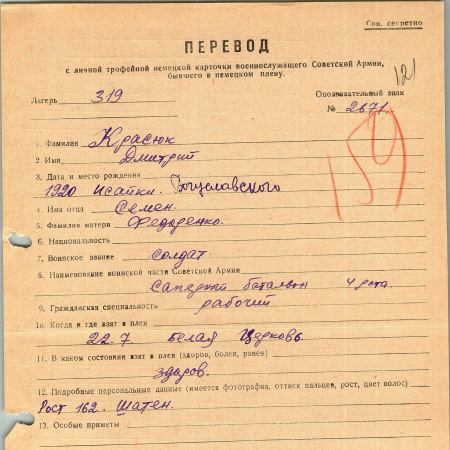 Сов. секретно
ПЕРЕВОД
с личной трофейной немецкой карточки военнослужащего Советской Армии,
бывшего в немецком плену.
121
Лагерь 319
Опознавательный знак
№ 2671
159
1. Фамилия Красюк
2 Имя Дмитрий
3. Дата и место рождения
1920 Исайки. Богуславского
4. Имя отца Семен.
5. Фамилия матери Федоренко.
6. Национальность
7. Воинское звание солдат
8. Наименование воинской части Советской Армии
Саперный баталион 4 рота.
9. Гражданская специальность рабочий
10. Когда и где взят в плен
22.7 Белая Церковь
11. В каком состоянии взят в плен (здоров, болен, ранен)
здоров.
12. Подробные персональные данные (имеется фотография, оттиск пальцев, рост, цвет волос)
Рост 162. Шатен.
13. Особые приметы